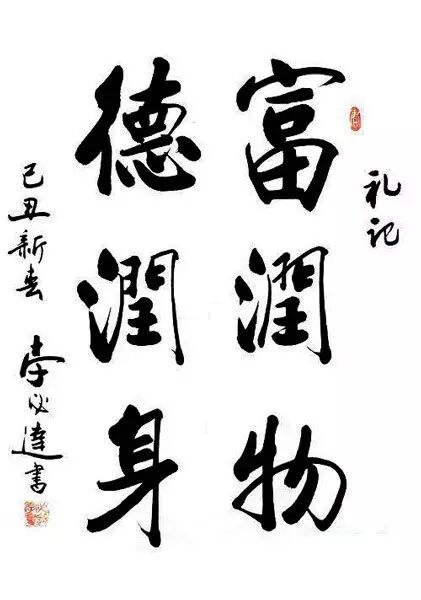 礼记
富潤物
德潤身
己丑新春
李必達書